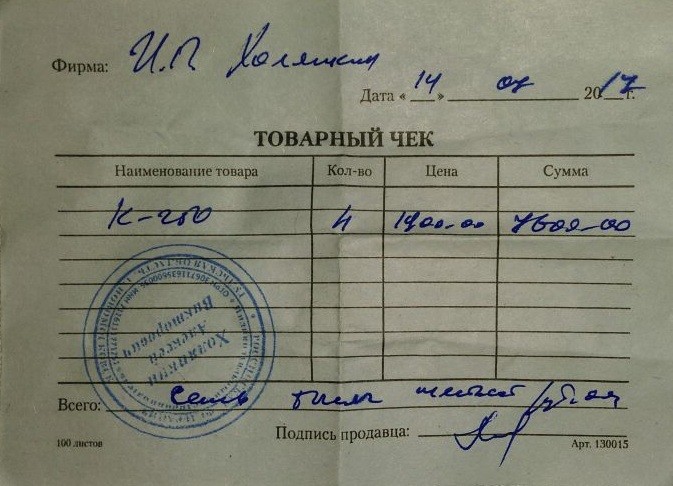 Фирма: И.П. Холяпкин
Дата « 14 » 07 2017 г.
ТОВАРНЫЙ ЧЕК
Наименование товара Кол-во Цена Сумма
К-250 4 1900-00 7600-00
Всего: Семь тысяч шестьсот рублей
Подпись продавца:
100 листов Арт. 130015
Холяпкин
Алексей
Викторович